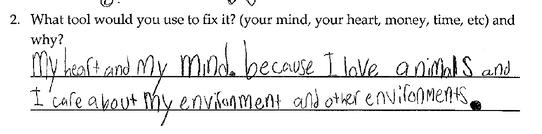 2. What tool would you use to fix it? (your mind, your heart, money, time, etc) and
why?
My heart and my mind. because I love animals and
I care about my environment and other environments.